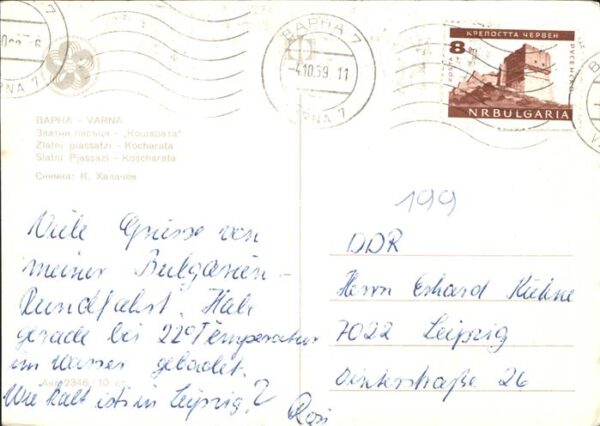 ВАРНА 7
-4.10.69 11
VARNA 7
8
КРЕПОСТТА ЧЕРВЕН
РУСЕНСКО
ПОЩА
NR BULGARIA
ВАРНА - VARNA
Златни пясъци - „Кошарата"
Zlatni piassatzi - Kocharata
Slatni Pjassazi - Koscharata
Снимка: К. Халачев
199
Viele Grüsse von
meiner Bulgarien-
Rundfahrt. Habe
gerade bei 22° Temperatur
im Wasser gebadet.
Wie kalt ist's in Leipzig?
Rosi
DDR
Herrn Erhard Kühne
7022 Leipzig
26